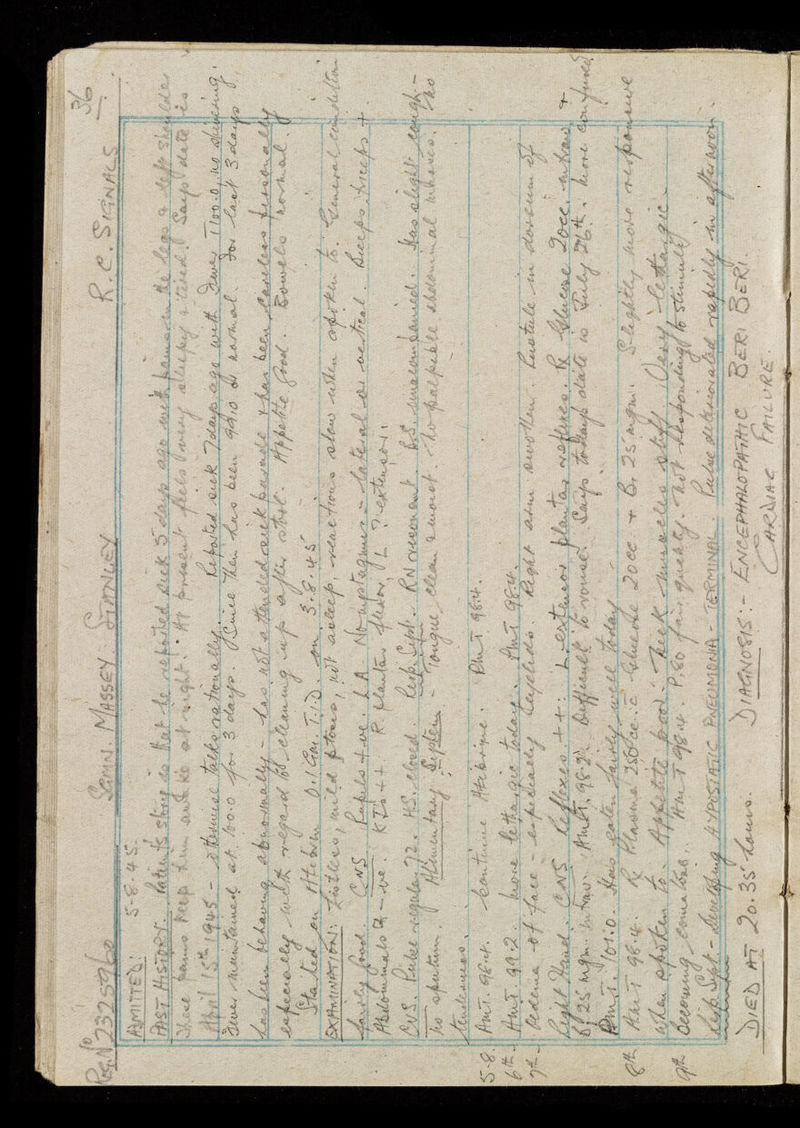 Reg. No 2325960 SGMN. MASSEY. STANLEY R.C. SIGNALS. 36
ADMITTED: 5-8-45.
PAST HISTORY. Patient's story is that he reported sick 5 days ago with pains in the legs & left shoulder
These pains keep him awake at night. At present feels very sleepy & tired. Says date is
April 15th 1945 - otherwise talks rationally. Reported sick 7 days ago with fever T100.0, no shivering.
Fever maintained at 100.0 for 3 days. Since then has been 99.0 to normal. For last 3 days
has been behaving abnormally - has not attended sick parade & has been careless personally
especially with regard to cleaning up after stool. Appetite good. Bowels normal.
Started on Atebrin 0.1 Gm. T.I.D. on 3.8.45
EXAMINATION: Listless, mild ptosis, not asleep, reactions slow when spoken to. General condition
fairly good. CNS Pupils +ve. LA. No nystagmus - lateral or vertical. Biceps, triceps +
Abdominals -ve. KJs ++ R. plantar flexor, L ? extensor.
CVS. Pulse regular 72. HS. closed. Resp. Syst. RN resonant. BS. unaccompanied. Has slight cough -
no sputum. Alimentary System - Tongue clean & moist. No palpable abdominal masses. No
tenderness.
5-8. Am T. 98.4. Continue Atebrine. Pm T 98.4.
6th - Am T 99.2 more lethargic today. Pm T 98.4.
7th - Oedema of face - especially eyelids. Right arm swollen. Pustule in dorsum of
Right Hand. CNS Reflexes ++. L extensor plantar reflexes. Rx Glucose 20cc. intrav. +
B1 25 mgm. intrav. Am T. 98.2. Difficult to rouse. Says today's date is July 26th. More confused
Pm T. 101.0. Has eaten fairly well today.
8th Am T 98.4. Rx Plasma 250 cc. c Glucose 20cc + B1 25 mgm. Slightly more responsive
when spoken to. Appetite good. Neck muscles stiff. Very lethargic.
9th Becoming comatose. Am T 98.4. P. 80 fair quality. Not responding to stimuli
Resp Syst - developing HYPOSTATIC PNEUMONIA - TERMINAL. Pulse deteriorated rapidly in afternoon.
DIED AT 20.35 hours. DIAGNOSIS:- ENCEPHALOPATHIC BERI BERI.
CARDIAC FAILURE